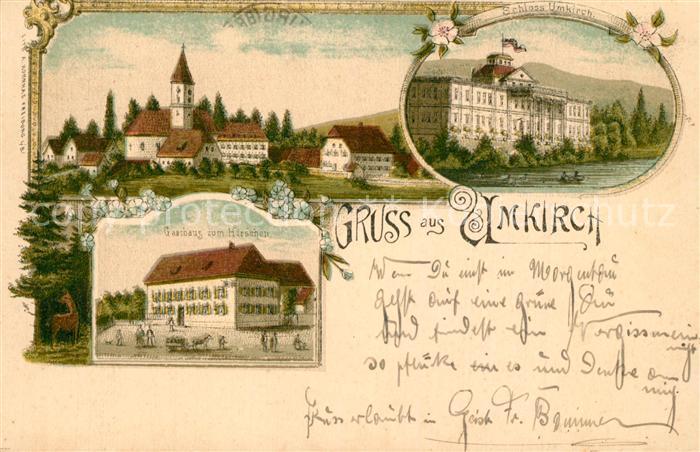 Schloss Umkirch.
Gasthaus zum Hirschen.
GRUSS aus UMKIRCH
Wenn Du einst im Morgentau
gehst auf eine grüne Au
und findest ein Vergissmein
nicht
so pflücke ein es und denke an
mich.
Fr.